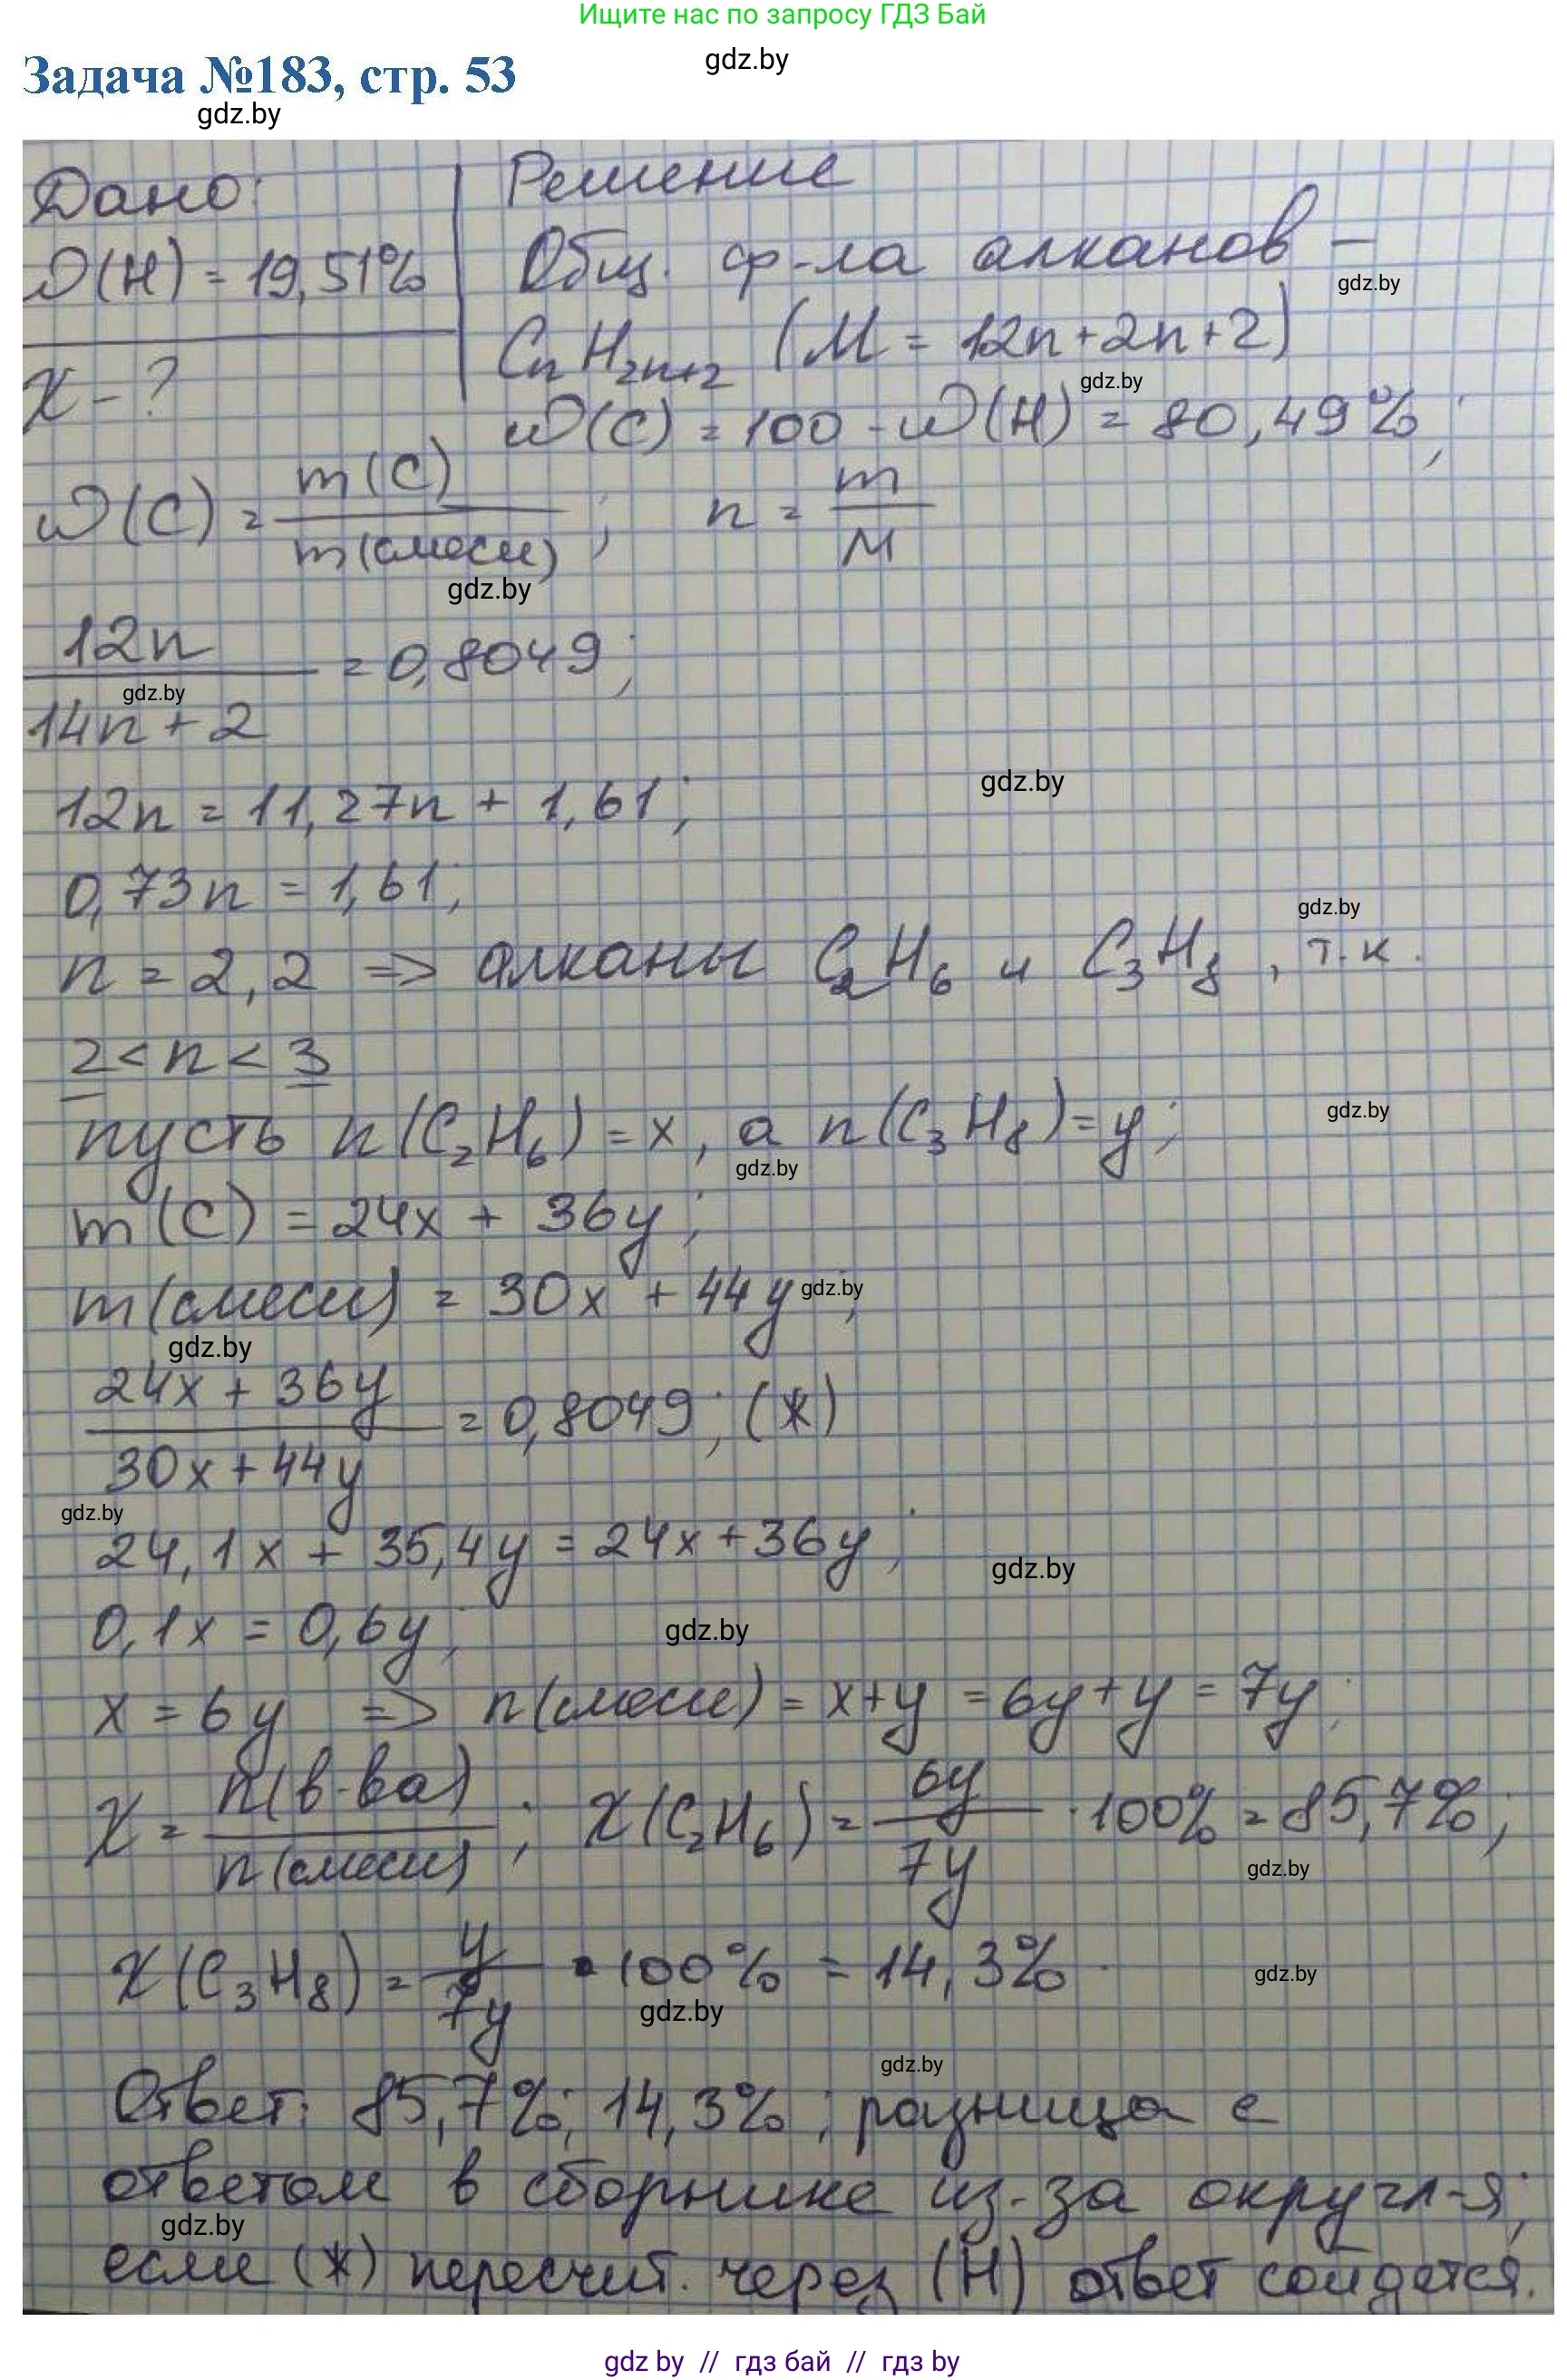 Ищите нас по запросу ГДЗ Бай
gdz.by
Задача №183, стр. 53
gdz.by
Дано: Решение
ω(H) = 19,51% Общ. ф-ла алканов –
gdz.by
CnH2n+2 (M = 12n+2n+2)
gdz.by
χ – ?
ω(C) = 100 - ω(H) = 80,49%;
ω(C) = m(C) / m(смеси) ; n = m / M
gdz.by
12n / 14n + 2 = 0,8049;
gdz.by
12n = 11,27n + 1,61;
gdz.by
0,73n = 1,61;
gdz.by
n = 2,2 => алканы C2H6 и C3H8, т.к.
2 < n < 3
пусть n(C2H6) = x, а n(C3H8) = y;
gdz.by
gdz.by
m(C) = 24x + 36y;
m(смеси) = 30x + 44y;
gdz.by
gdz.by
24x + 36y / 30x + 44y = 0,8049; (*)
gdz.by
24,1x + 35,4y = 24x + 36y;
gdz.by
0,1x = 0,6y;
gdz.by
x = 6y => n(смеси) = x+y = 6y+y = 7y;
χ = n(в-ва) / n(смеси) ; χ(C2H6) = 6y / 7y · 100% = 85,7%;
gdz.by
χ(C3H8) = y / 7y · 100% = 14,3%.
gdz.by
gdz.by
gdz.by
Ответ: 85,7%; 14,3%; разница с
ответом в сборнике из-за округл-я;
gdz.by
если (*) пересчит. через (H) ответ сойдется.
gdz.by // гдз бай // гдз by